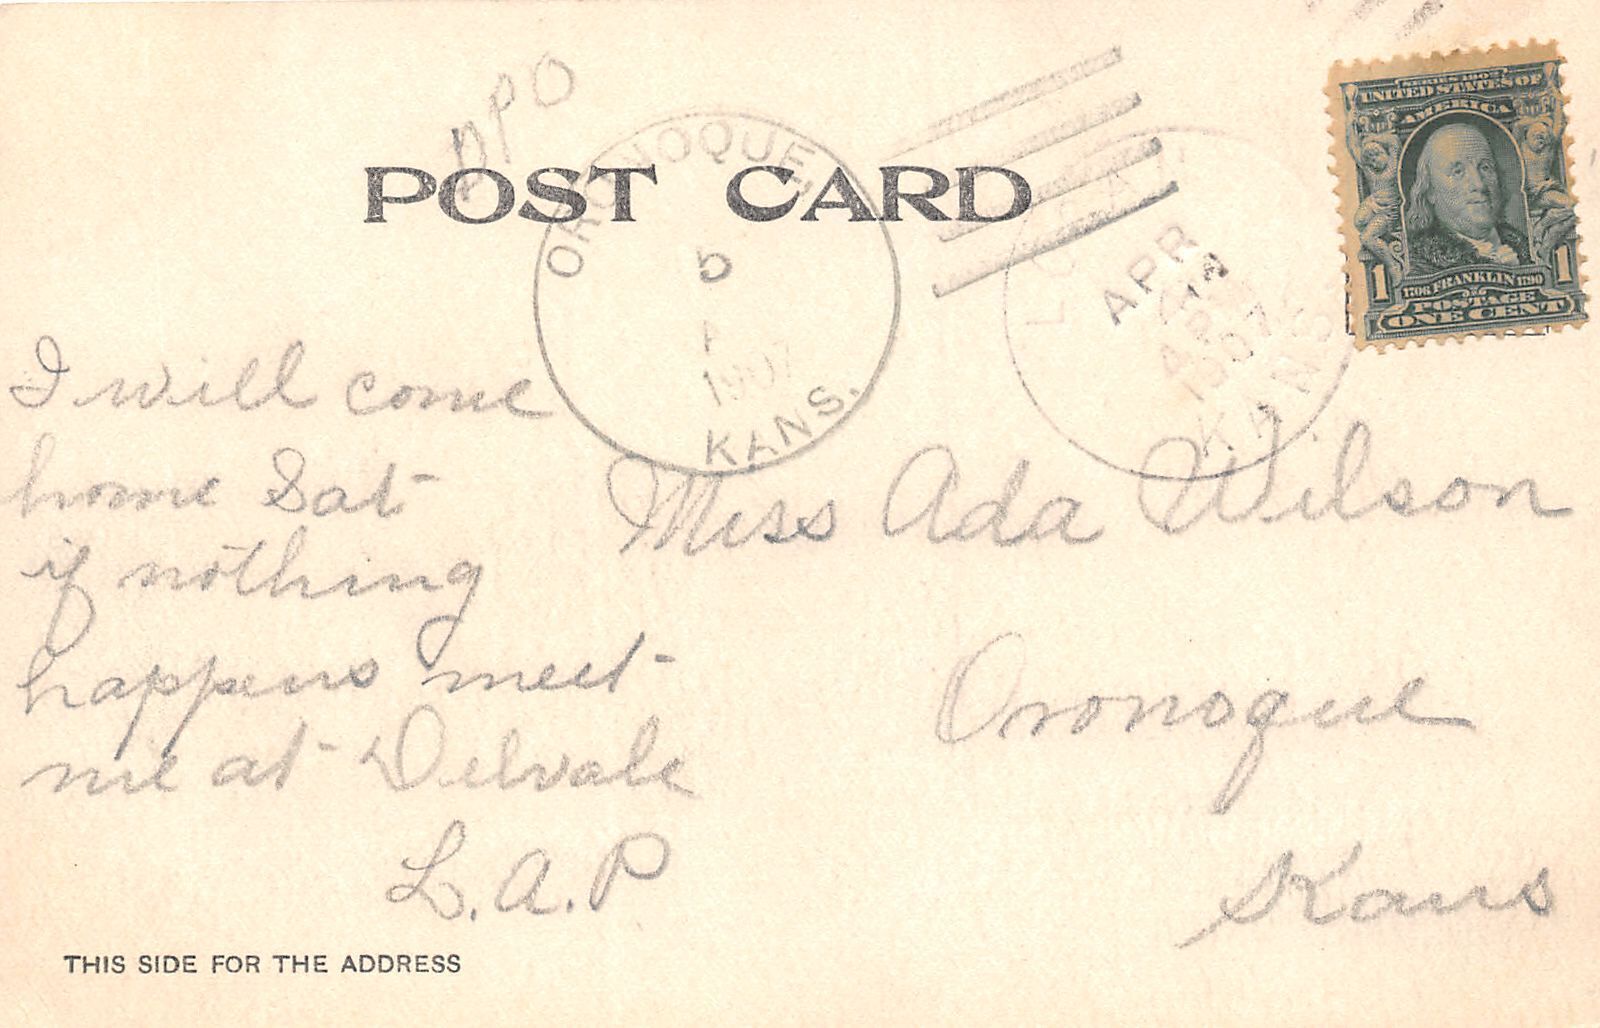 DPO
POST CARD
ORONOQUE,
5
1907
KANS.
LOGAN
APR
4
1907
KANS.
SERIES 1902
UNITED STATES OF
AMERICA
1706 FRANKLIN 1790
1 1
POSTAGE
ONE CENT
I will come
home Sat
if nothing
happens meet
me at Delvale
L.A.P
Miss Ada Wilson
Oronoque
Kans
THIS SIDE FOR THE ADDRESS